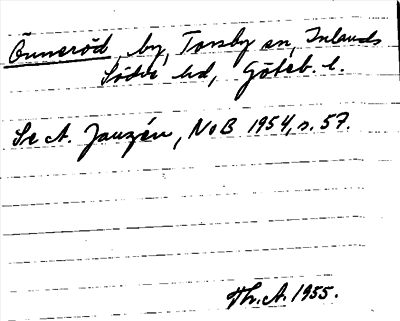 Önneröd, by, Torsby sn, Inlands
Södre hd, Göteb. l.
Se A. Janzén, NoB 1954, s. 57.
Th.A. 1955.